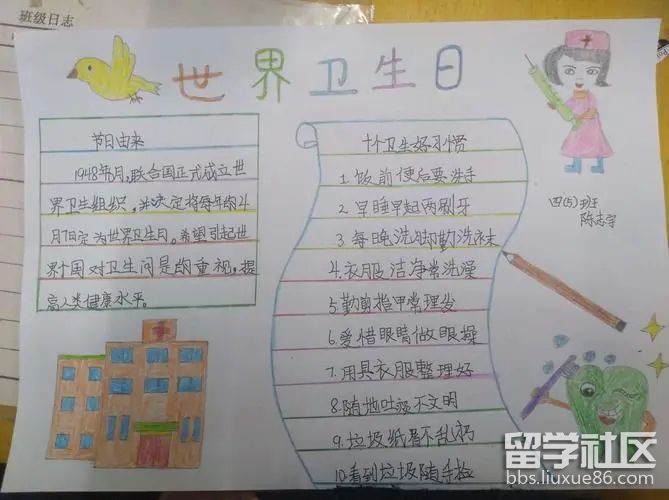 班级日志
世界卫生日
节日由来
1948年6月,联合国正式成立世
界卫生组织,并决定将每年的4
月7日定为世界卫生日。希望引起世
界个国对卫生问是的重视,提
高人类健康水平。
十个卫生好习惯
1.饭前便后要洗手
2.早睡早起两刷牙
3.每晚洗脚勤洗袜
4.衣服洁净常洗澡
5.勤剪指甲常理发
6.爱惜眼睛做眼操
7.用具衣服整理好
8.随地吐痰不文明
9.垃圾纸屑不乱扔
10.看到垃圾随手捡
四(5)班
陈志宇
留学社区
bbs.liuxue86.com